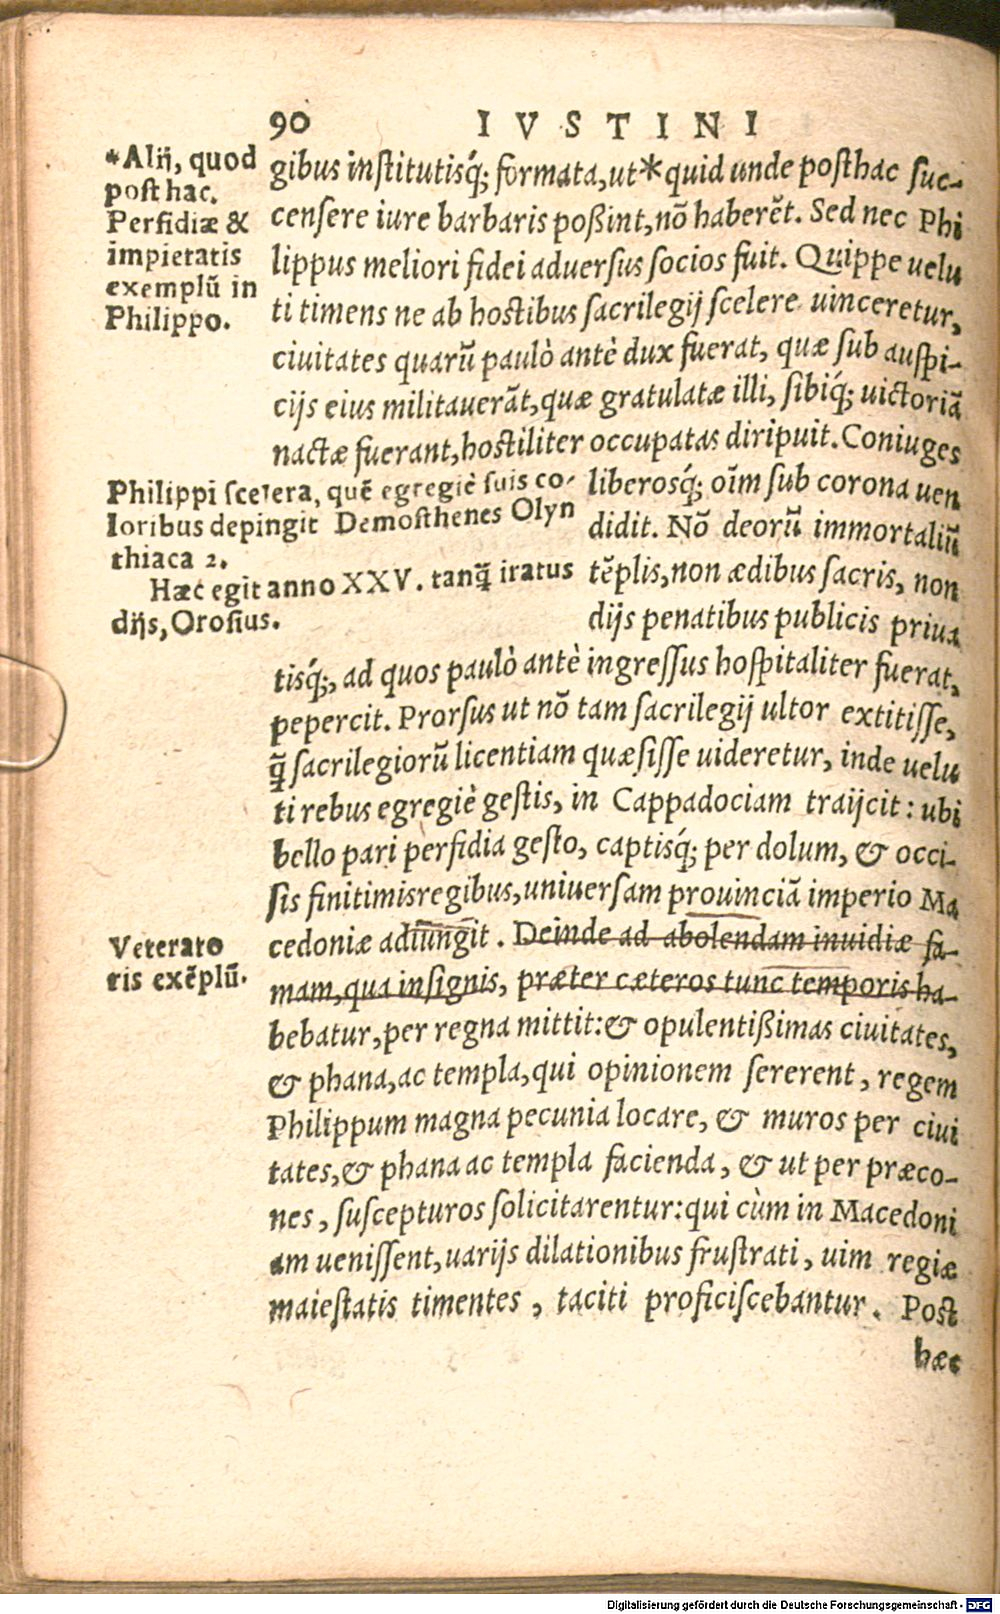 90 IVSTINI
*Alij, quod
posthac.
Perfidiæ &
impietatis
exemplū in
Philippo.
gibus institutisq́; formata, ut * quid unde posthac suc-
censere iure barbaris poßint, nō haberēt. Sed nec Phi
lippus meliori fidei aduersus socios fuit. Quippe uelu
ti timens ne ab hostibus sacrilegij scelere uinceretur,
ciuitates quarū paulò antè dux fuerat, quæ sub auspi-
cijs eius militauerāt, quæ gratulatæ illi, sibiq́; uictoriā
nactæ fuerant, hostiliter occupatas diripuit. Coniuges
Philippi scelera, quē egregiè suis co-
loribus depingit Demosthenes Olyn
thiaca 2.
Hæc egit anno XXV. tanq̄ iratus
dijs, Orosius.
liberosq́; oīm sub corona uen
didit. Nō deorū immortaliū
tēplis, non ædibus sacris, non
dijs penatibus publicis priua
tisq́;, ad quos paulò antè ingressus hospitaliter fuerat,
pepercit. Prorsus ut nō tam sacrilegij ultor extitisse,
q̄ sacrilegiorū licentiam quæsisse uideretur, inde uelu
ti rebus egregiè gestis, in Cappadociam traijcit: ubi
bello pari perfidia gesto, captisq́; per dolum, & occi-
sis finitimisregibus, uniuersam prouinciā imperio Ma
cedoniæ adiungit. Deinde ad abolendam inuidiæ fa-
Veterato
ris exēplū.
mam, qua insignis, præter cæteros tunc temporis ha-
bebatur, per regna mittit: & opulentißimas ciuitates,
& phana, ac templa, qui opinionem sererent, regem
Philippum magna pecunia locare, & muros per ciui
tates, & phana ac templa facienda, & ut per præco-
nes, suscepturos solicitarentur: qui cùm in Macedoni
am uenissent, uarijs dilationibus frustrati, uim regiæ
maiestatis timentes, taciti proficiscebantur. Post
hæc
Digitalisierung gefördert durch die Deutsche Forschungsgemeinschaft - DFG